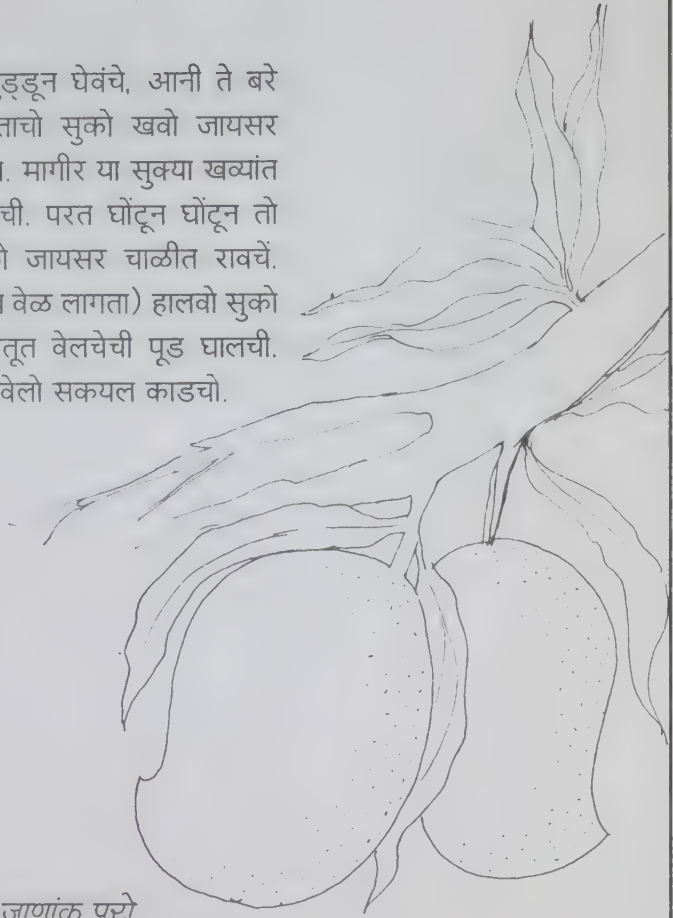 घेवंचे, आनी ते बरे
सुको खवो जायसर
मागीर या सुक्या खव्यांत
परत घोंटून घोंटून तो
जायसर चाळीत रावचें.
वेळ लागता) हालवो सुको
वेलचेची पूड घालची.
सकयल काडचो.
जाणांक पुरो